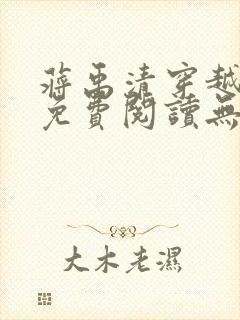 蔣禹清穿越
免費閱讀無
大木老濕